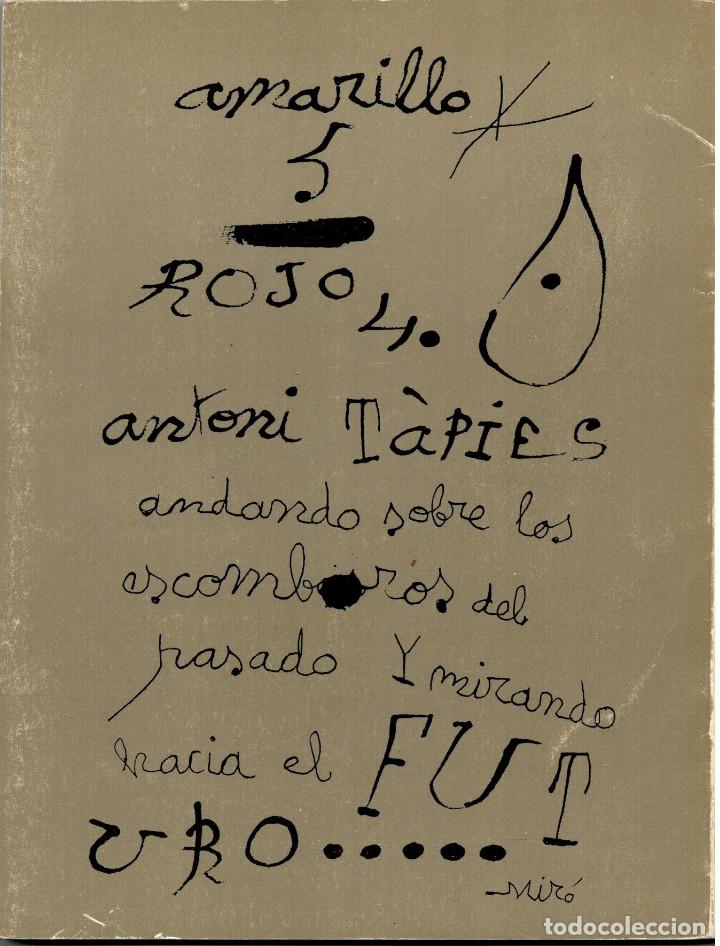 amarillo
5
ROJO 4.
antoni TÀPIES
andando sobre los
escombros del
pasado Y mirando
hacia el FUT
URO.....
Miró
todocoleccion